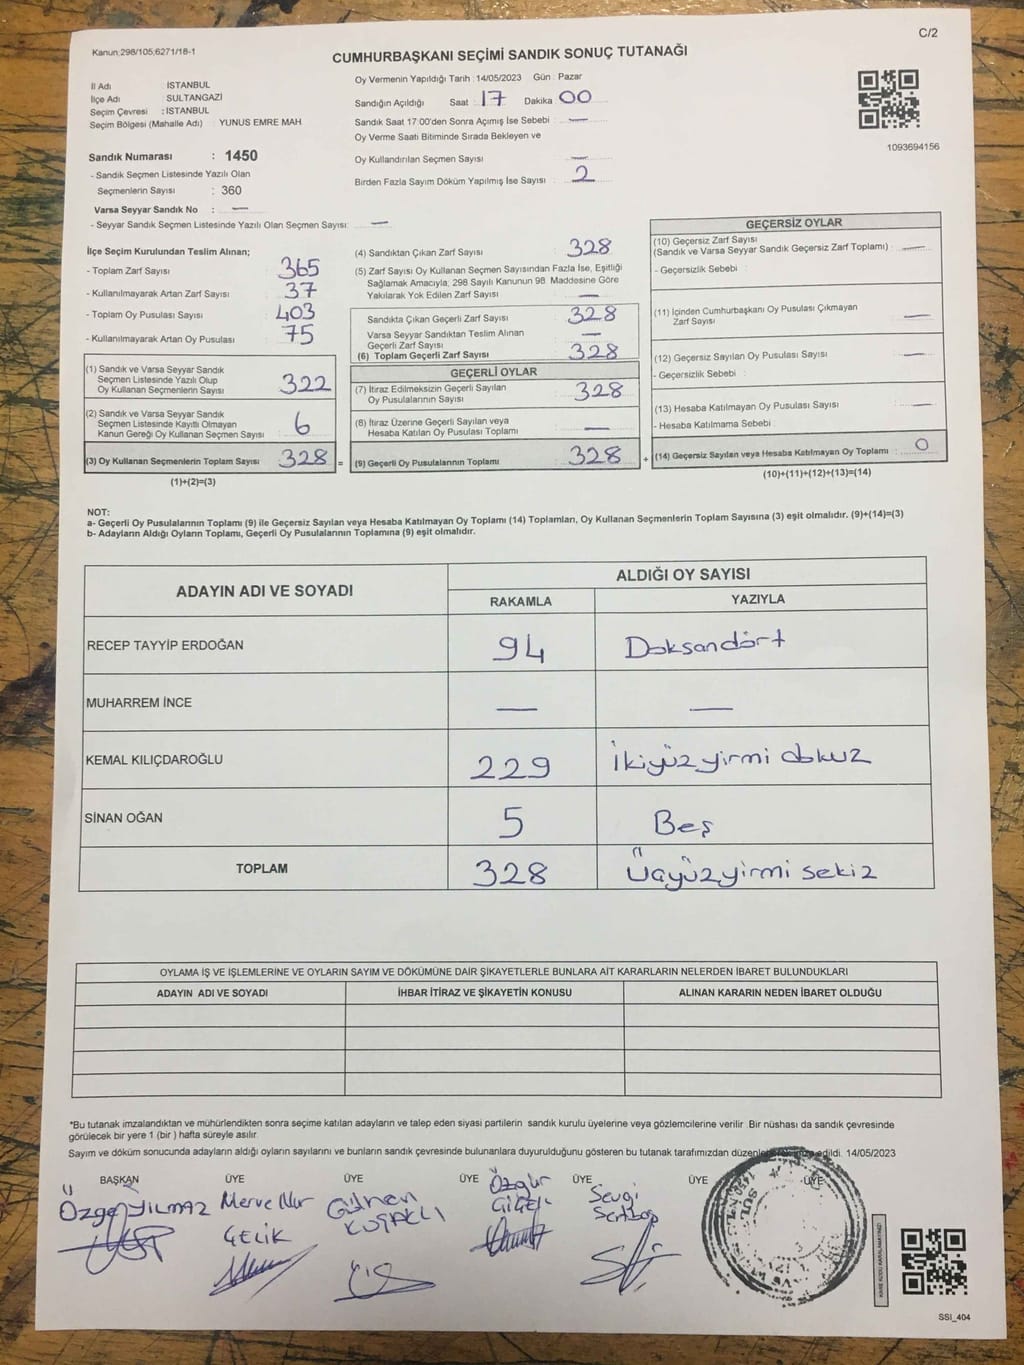 C/2
Kanun:298/105;6271/18-1
CUMHURBAŞKANI SEÇİMİ SANDIK SONUÇ TUTANAĞI
İl Adı : İSTANBUL
İlçe Adı : SULTANGAZİ
Seçim Çevresi : İSTANBUL
Seçim Bölgesi (Mahalle Adı) : YUNUS EMRE MAH.
Sandık Numarası : 1450
- Sandık Seçmen Listesinde Yazılı Olan
Seçmenlerin Sayısı : 360
Varsa Seyyar Sandık No : —
- Seyyar Sandık Seçmen Listesinde Yazılı Olan Seçmen Sayısı: —
Oy Vermenin Yapıldığı Tarih : 14/05/2023 Gün : Pazar
Sandığın Açıldığı Saat : 17 Dakika : 00
Sandık Saat 17:00'den Sonra Açımış İse Sebebi : —
Oy Verme Saati Bitiminde Sırada Bekleyen ve
Oy Kullandırılan Seçmen Sayısı : —
Birden Fazla Sayım Döküm Yapılmış İse Sayısı : 2
1093694156
İlçe Seçim Kurulundan Teslim Alınan;
- Toplam Zarf Sayısı : 365
- Kullanılmayarak Artan Zarf Sayısı : 37
- Toplam Oy Pusulası Sayısı : 403
- Kullanılmayarak Artan Oy Pusulası : 75
(1) Sandık ve Varsa Seyyar Sandık
Seçmen Listesinde Yazılı Olup
Oy Kullanan Seçmenlerin Sayısı : 322
(2) Sandık ve Varsa Seyyar Sandık
Seçmen Listesinde Kayıtlı Olmayan
Kanun Gereği Oy Kullanan Seçmen Sayısı : 6
(3) Oy Kullanan Seçmenlerin Toplam Sayısı : 328 =
(1)+(2)=(3)
(4) Sandıktan Çıkan Zarf Sayısı : 328
(5) Zarf Sayısı Oy Kullanan Seçmen Sayısından Fazla İse, Eşitliği
Sağlamak Amacıyla; 298 Sayılı Kanunun 98. Maddesine Göre
Yakılarak Yok Edilen Zarf Sayısı : —
Sandıkta Çıkan Geçerli Zarf Sayısı : 328
Varsa Seyyar Sandıktan Teslim Alınan
Geçerli Zarf Sayısı : —
(6) Toplam Geçerli Zarf Sayısı : 328
GEÇERLİ OYLAR
(7) İtiraz Edilmeksizin Geçerli Sayılan
Oy Pusulalarının Sayısı : 328
(8) İtiraz Üzerine Geçerli Sayılan veya
Hesaba Katılan Oy Pusulası Toplamı : —
(9) Geçerli Oy Pusulalarının Toplamı : 328 +
GEÇERSİZ OYLAR
(10) Geçersiz Zarf Sayısı
(Sandık ve Varsa Seyyar Sandık Geçersiz Zarf Toplamı) : —
- Geçersizlik Sebebi :
(11) İçinden Cumhurbaşkanı Oy Pusulası Çıkmayan
Zarf Sayısı : —
(12) Geçersiz Sayılan Oy Pusulası Sayısı : —
- Geçersizlik Sebebi :
(13) Hesaba Katılmayan Oy Pusulası Sayısı : —
- Hesaba Katılmama Sebebi :
(14) Geçersiz Sayılan veya Hesaba Katılmayan Oy Toplamı : 0
(10)+(11)+(12)+(13)=(14)
NOT:
a- Geçerli Oy Pusulalarının Toplamı (9) ile Geçersiz Sayılan veya Hesaba Katılmayan Oy Toplamı (14) Toplamları, Oy Kullanan Seçmenlerin Toplam Sayısına (3) eşit olmalıdır. (9)+(14)=(3)
b- Adayların Aldığı Oyların Toplamı, Geçerli Oy Pusulalarının Toplamına (9) eşit olmalıdır.
ADAYIN ADI VE SOYADI ALDIĞI OY SAYISI
RAKAMLA YAZIYLA
RECEP TAYYİP ERDOĞAN 94 Doksandört
MUHARREM İNCE — —
KEMAL KILIÇDAROĞLU 229 İkiyüzyirmi dokuz
SİNAN OĞAN 5 Beş
TOPLAM 328 Üçyüzyirmi sekiz
OYLAMA İŞ VE İŞLEMLERİNE VE OYLARIN SAYIM VE DÖKÜMÜNE DAİR ŞİKAYETLERLE BUNLARA AİT KARARLARIN NELERDEN İBARET BULUNDUKLARI
ADAYIN ADI VE SOYADI İHBAR İTİRAZ VE ŞİKAYETİN KONUSU ALINAN KARARIN NEDEN İBARET OLDUĞU
*Bu tutanak imzalandıktan ve mühürlendikten sonra seçime katılan adayların ve talep eden siyasi partilerin sandık kurulu üyelerine veya gözlemcilerine verilir. Bir nüshası da sandık çevresinde
görülecek bir yere 1 (bir ) hafta süreyle asılır.
Sayım ve döküm sonucunda adayların aldığı oyların sayılarını ve bunların sandık çevresinde bulunanlara duyurulduğunu gösteren bu tutanak tarafımızdan edildi. 14/05/2023
BAŞKAN ÜYE ÜYE ÜYE ÜYE ÜYE ÜYE
Özge YILMAZ Merve Nur Gülnan Özgür Sevgi
ÇELİK
KARE KODU KARALAMAYINIZ!
SSI_404